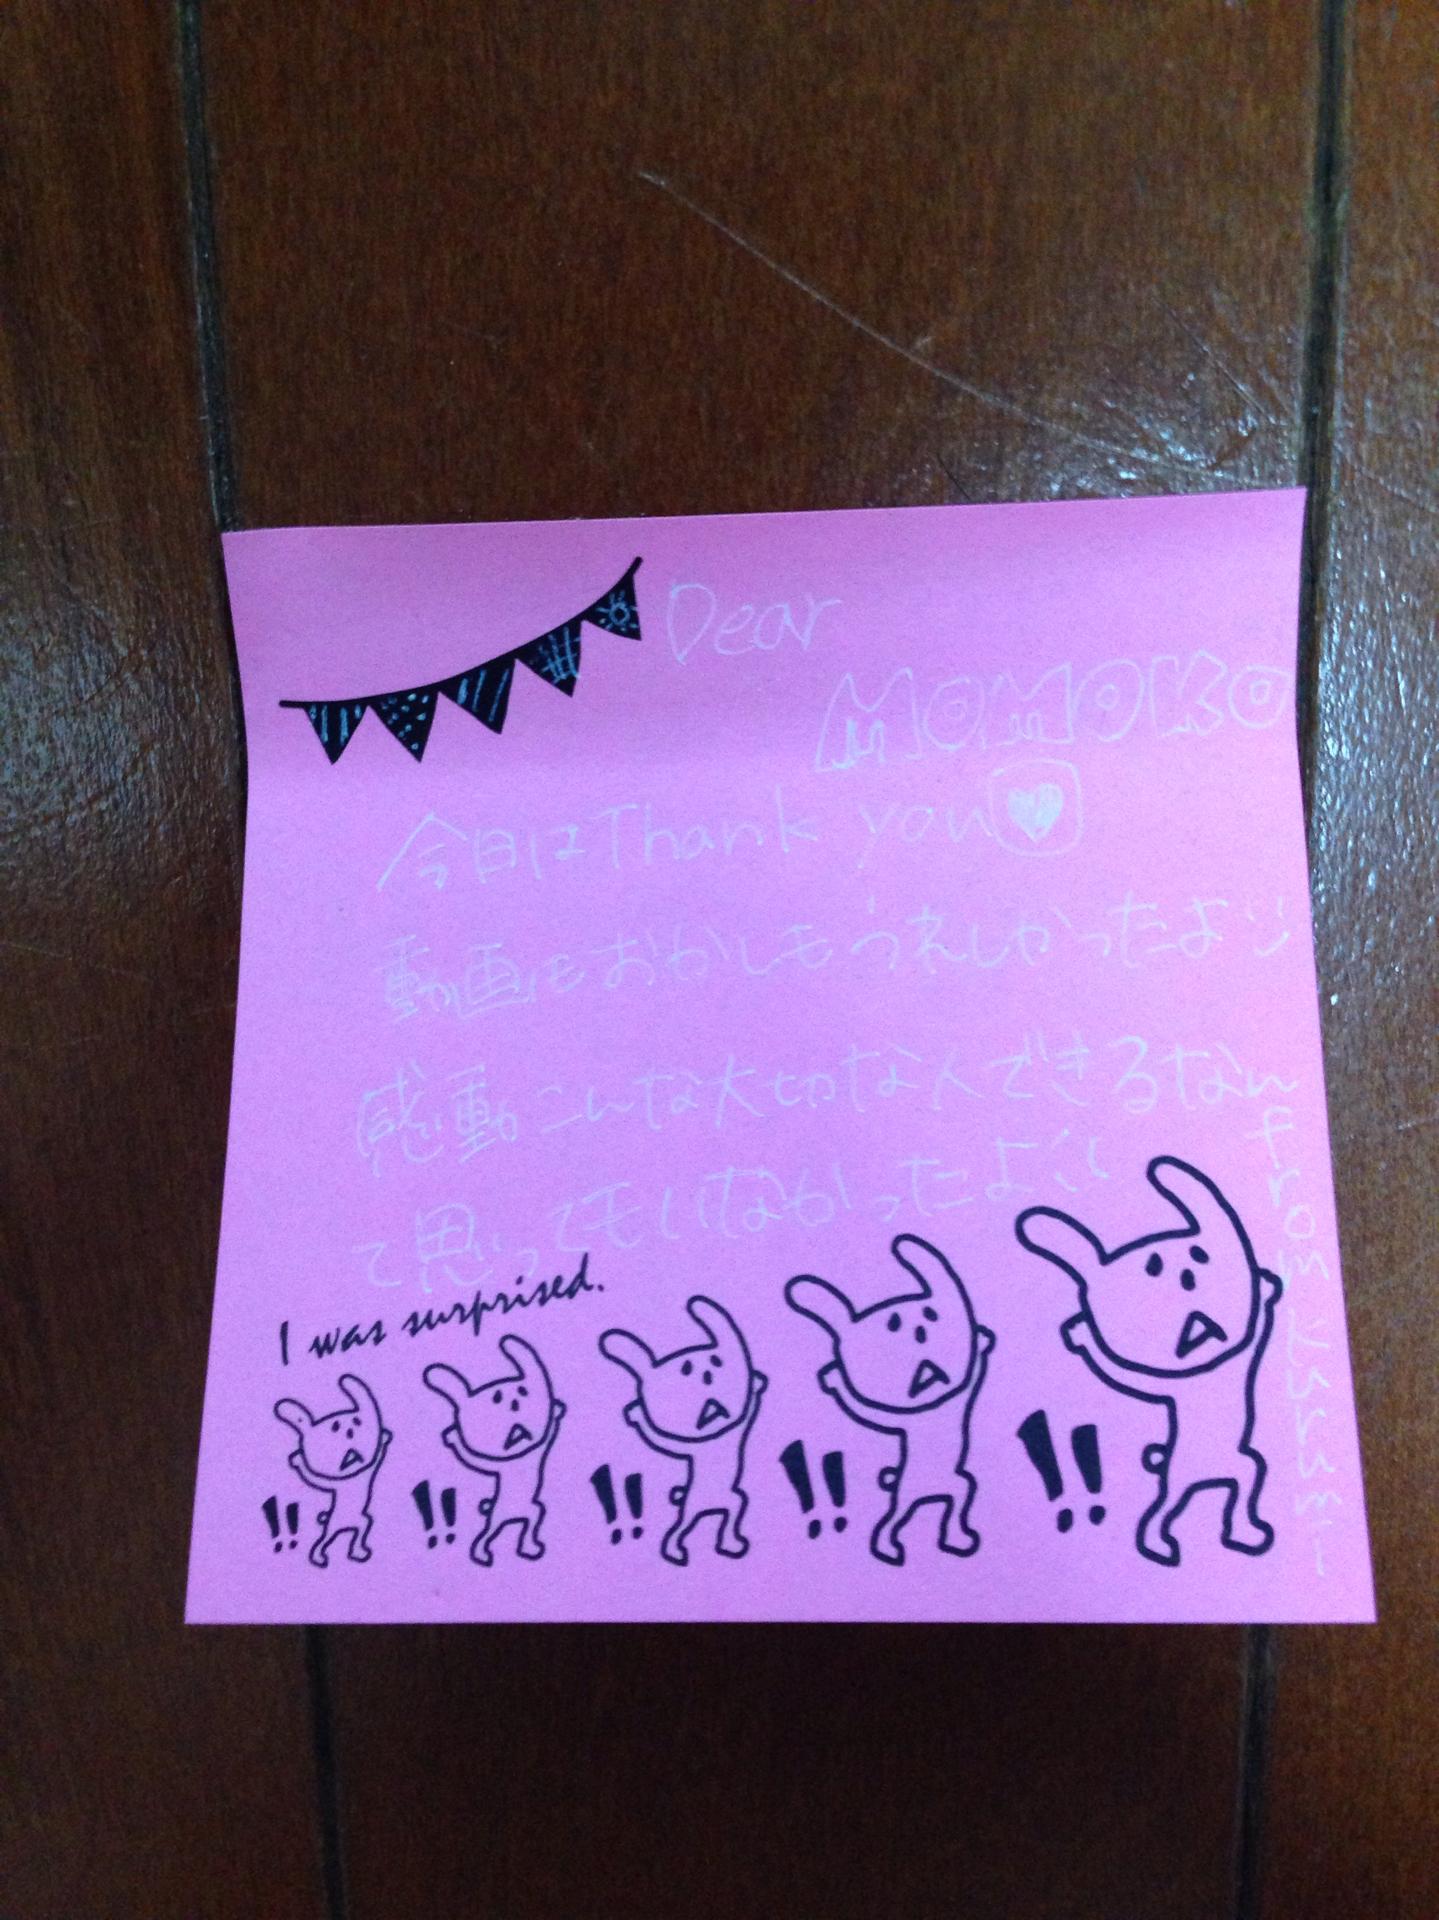 Dear
MOMOKO
今日はThank you♥
動画もおかしもうれしかったよ
感動こんな大切な人できるなん
て思ってもいなかったよ!!
from
I was surprised.
!! !! !! !! !!